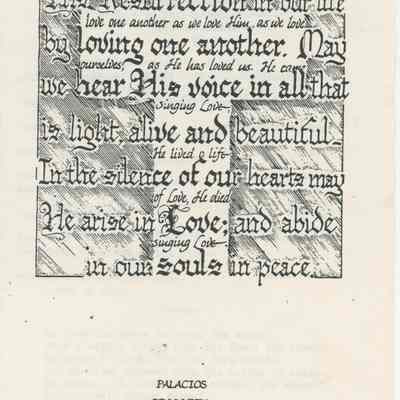 Resurrection in our life
love one another as we love Him, as we love
by loving one another. May
ourselves, as He has loved us. He came
we hear His voice in all that
Singing Love.
is light, alive and beautiful.
He lived a life
In the silence of our hearts may
of Love, He died
He arise in Love; and abide
singing Love.
in our souls in peace.
PALACIOS